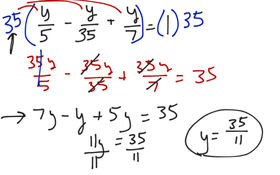 35(y/5 - y/35 + y/7) = (1)35
35y/5 - 35y/35 + 35y/7 = 35
→ 7y - y + 5y = 35
11y/11 = 35/11
y = 35/11